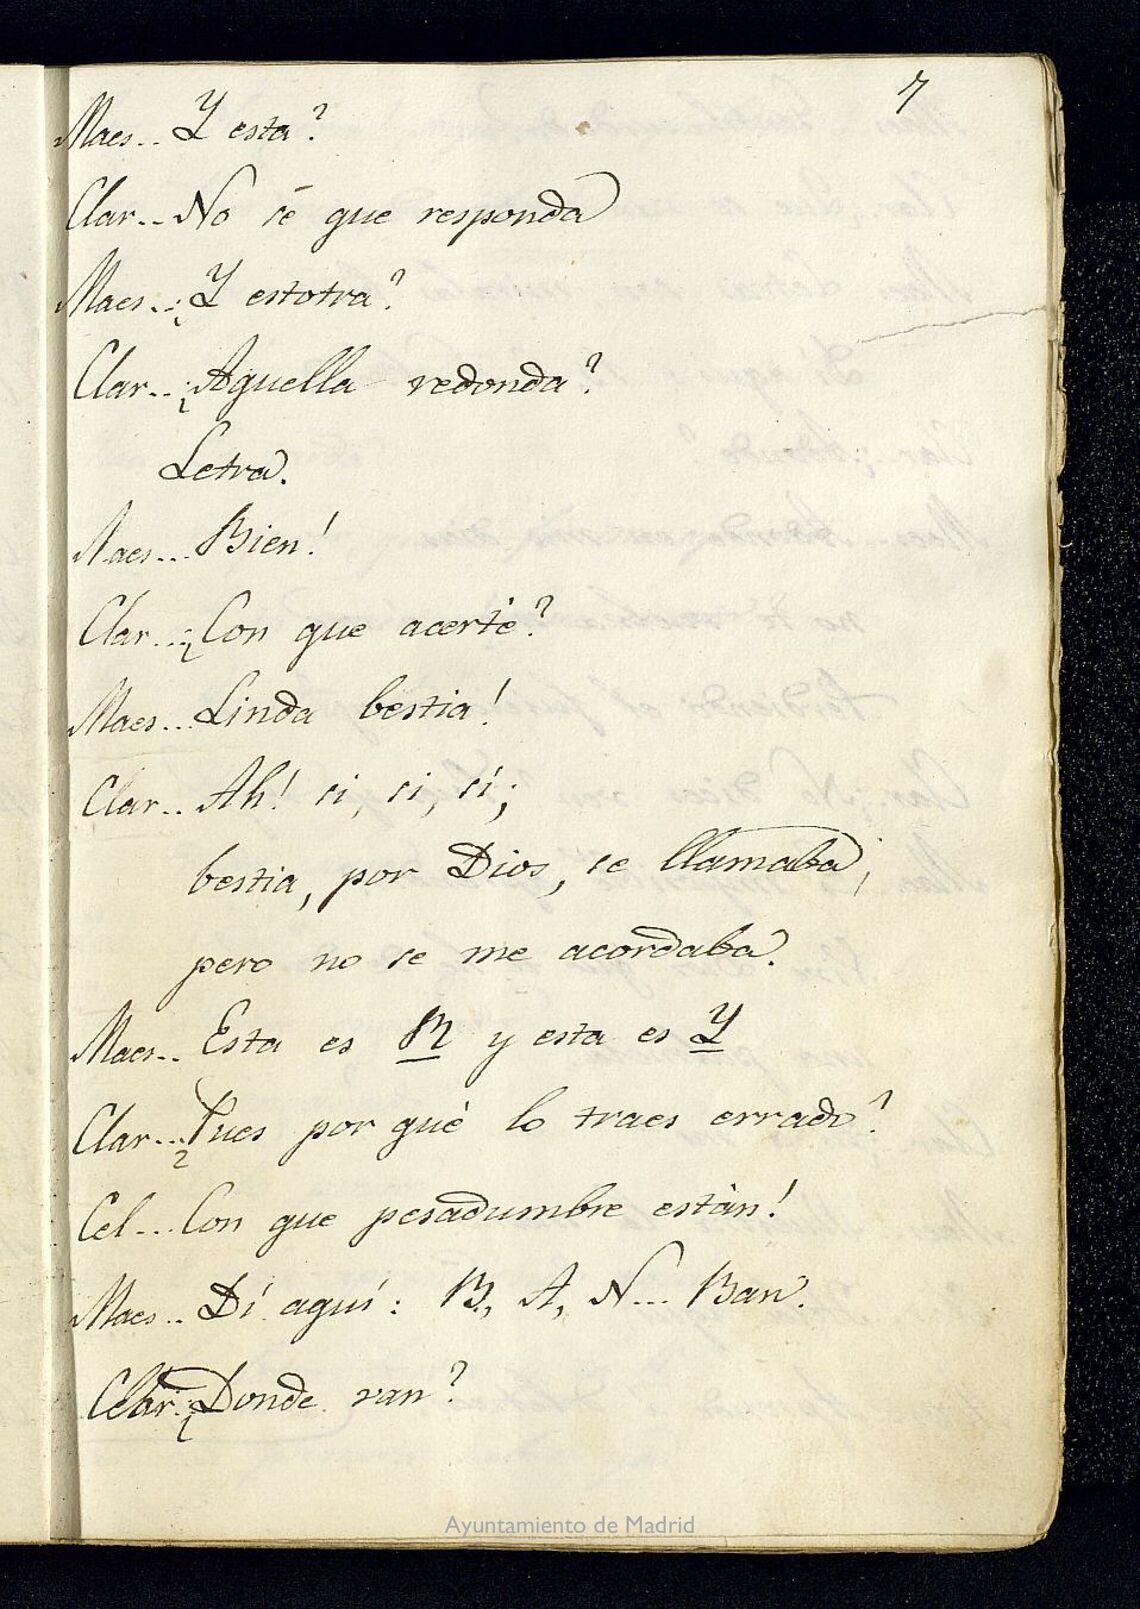 7
Maes.. Y esta?
Clar.. No sé que responda
Maes..¿Y estotra?
Clar..¿Aquella redonda?
Letra.
Maes... Bien!
Clar...¿Con que acerté?
Maes... Linda bestia!
Clar.. Ah! si, si, si;
bestia, por Dios, se llamaba;
pero no se me acordaba.
Maes.. Esta es R y esta es Y
Clar...¿Pues por qué lo traes errado?
Cel... Con que pesadumbre están!
Maes.. Dí aquí: B, A, N... Ban.
Clar..¿Donde van?
Ayuntamiento de Madrid